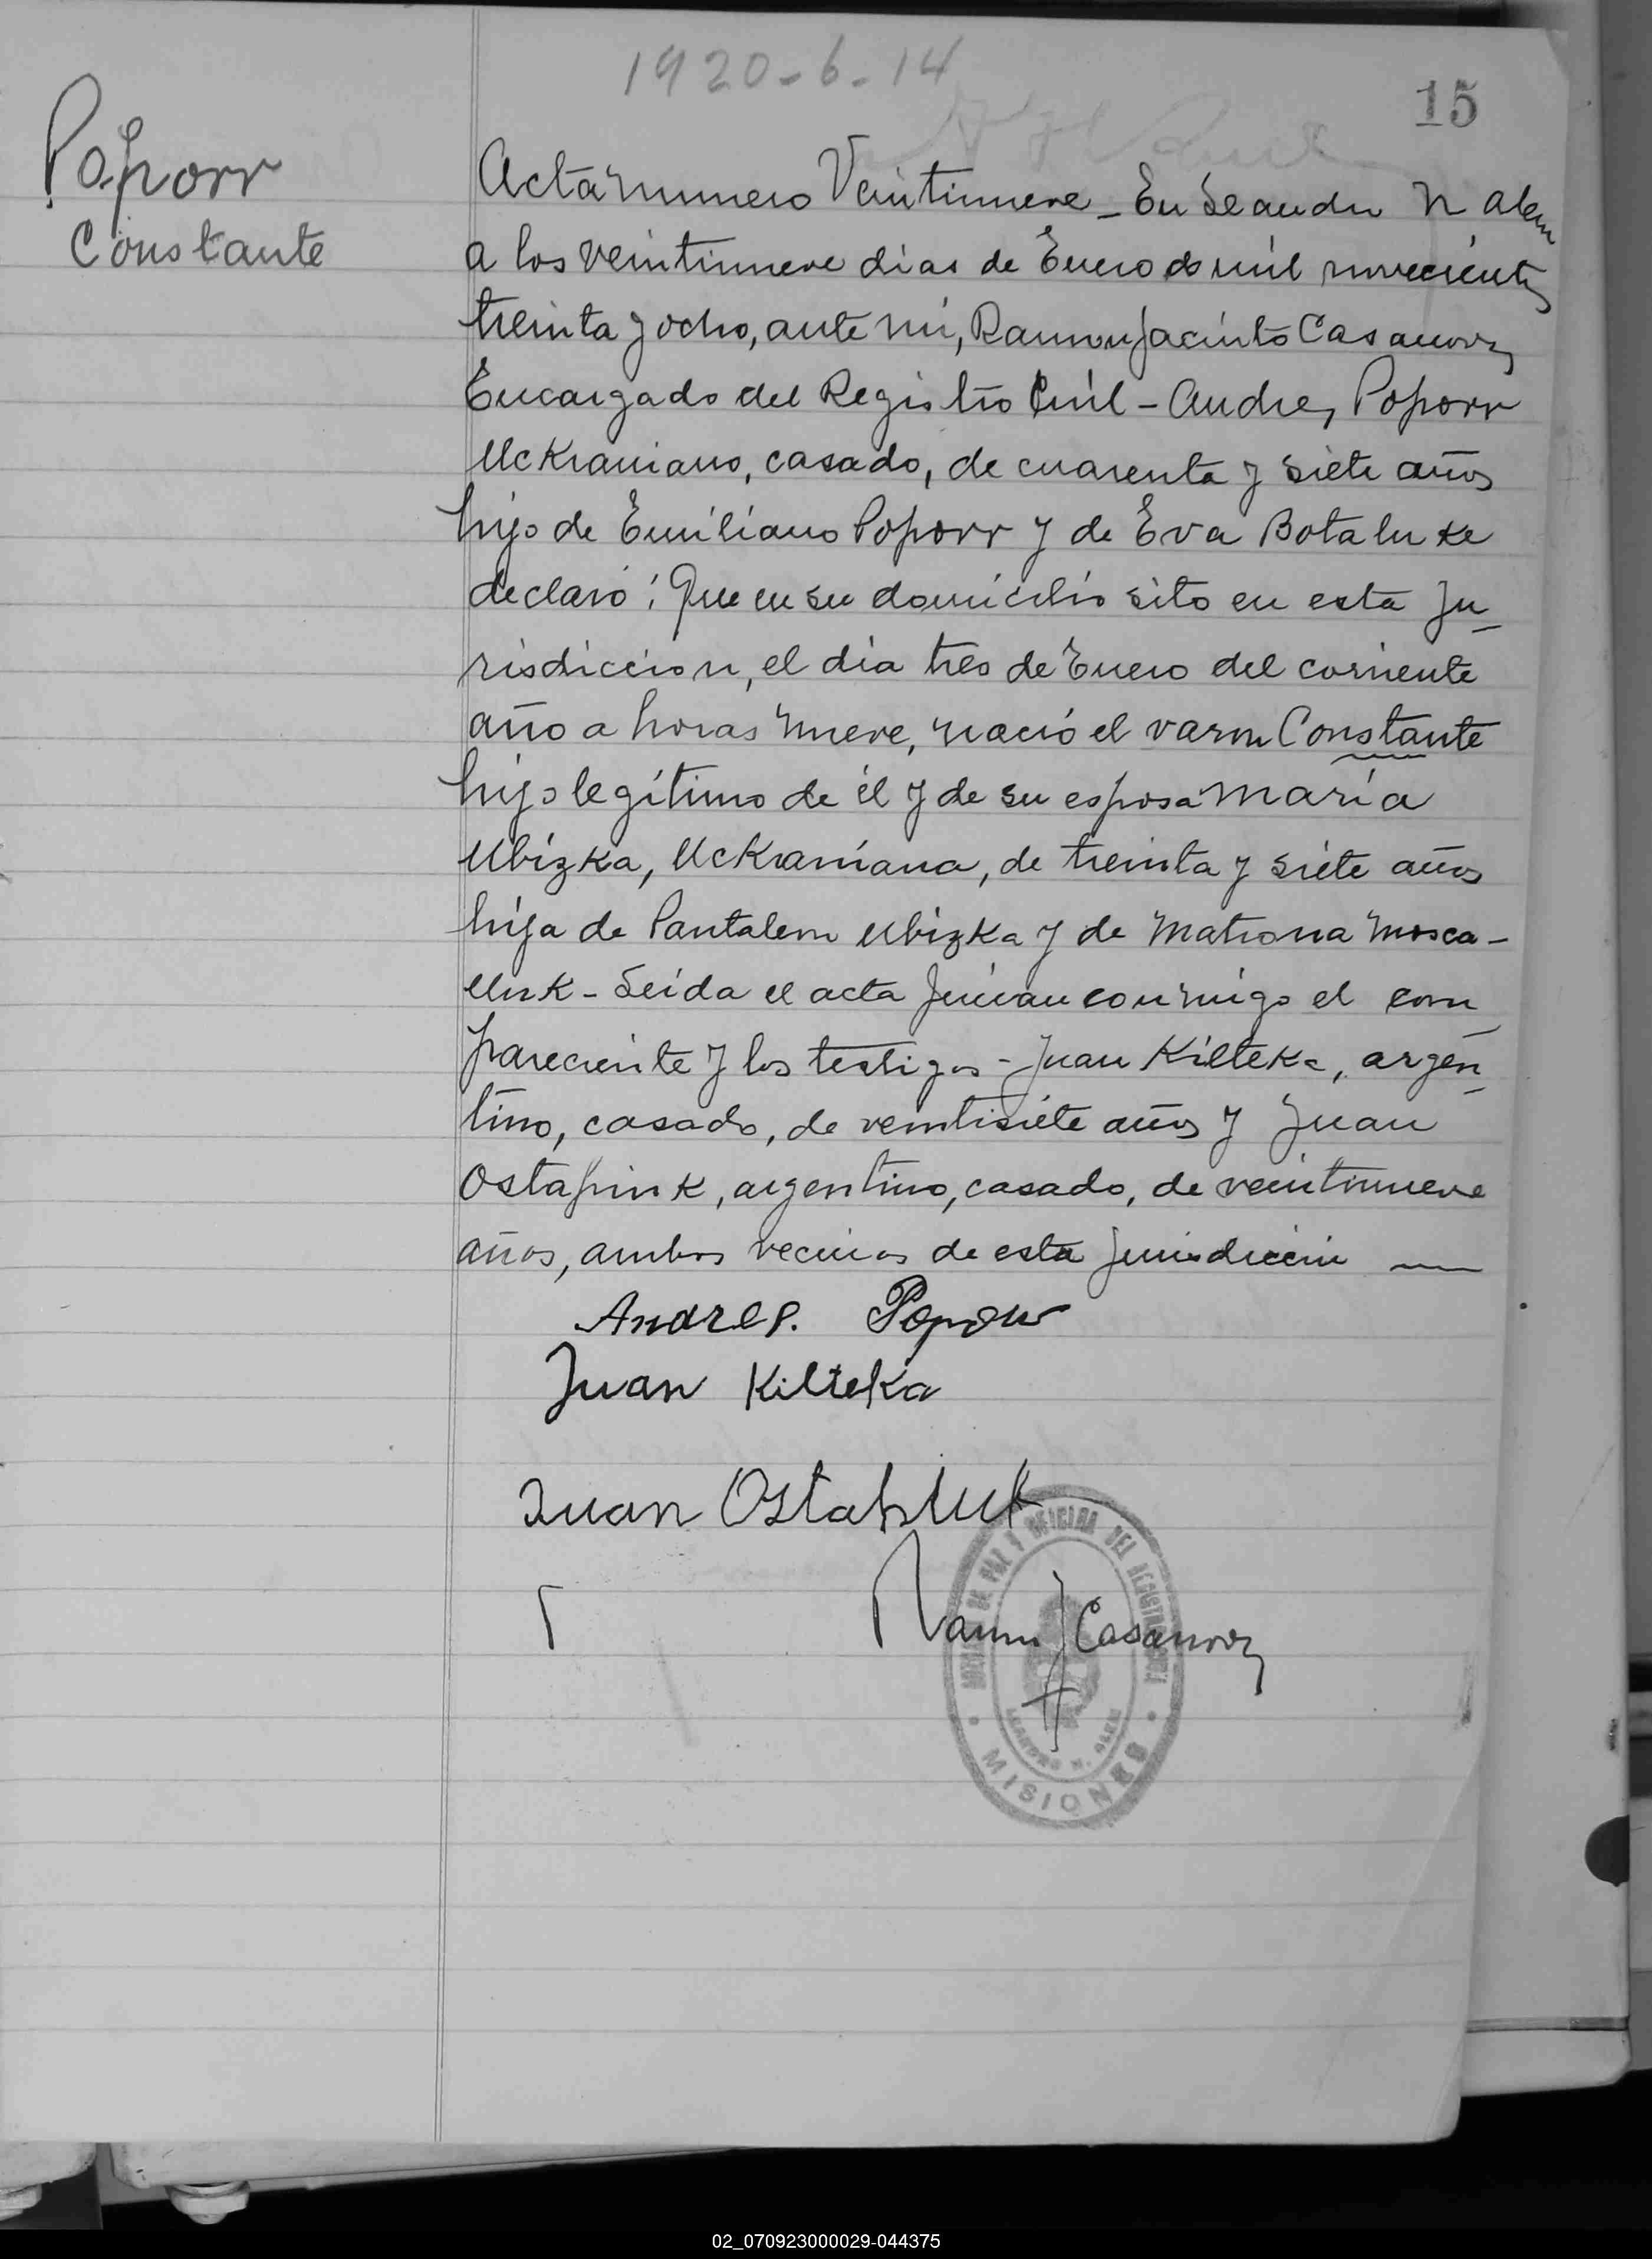 1920-6-14
15
Poporr
Constante
Acta numero Veintinueve - En Leandro N Alem
a los veintinueve dias de Enero de mil novecientos
treinta y ocho, ante mi, Ramon Jacinto Casanova
Encargado del Registro Civil - Andres Poporr
Uckraniano, casado, de cuarenta y siete años
hijo de Emiliano Poporr y de Eva Botaluke
declaró: Que en su domicilio sito en esta Ju-
risdiccion, el dia tres de Enero del corriente
año a horas nueve, nació el varon Constante
hijo legítimo de él y de su esposa María
Ubizka, Uckraniana, de treinta y siete años
hija de Pantaleon Ubizka y de Matrona Mosca-
liuk - Leida el acta firman conmigo el com-
pareciente y los testigos - Juan Kilteka, argen-
tino, casado, de veintisiete años y Juan
Ostapiuk, argentino, casado, de veintinueve
años, ambos vecinos de esta jurisdiccion
Andres. Popow
Juan Kilteka
Juan Ostapiuk
Ramon J Casanova
DE PAZ Y OFICINA DEL REGISTRO
LEANDRO N. ALEM
MISIONES
02_070923000029-044375